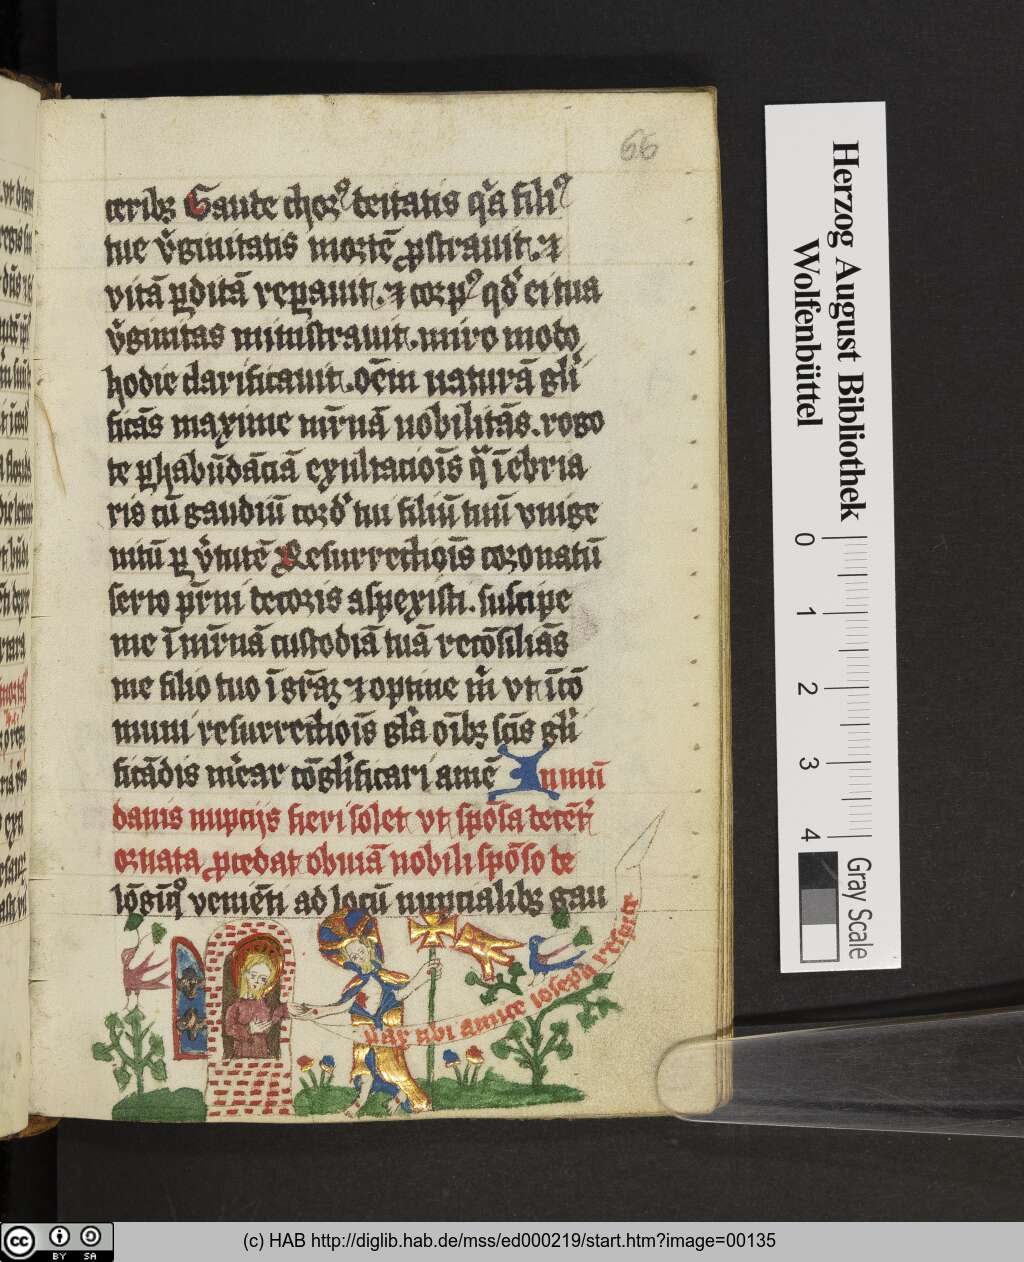 66
teribꝫ Gaude choꝛꝰ deitatis qꝛa filiꝰ
tue v̉ginitatis moꝛtē ꝓstrauit. ⁊
vitā ꝑditā reꝑauit. ⁊ coꝛpꝰ qd̉ ei tua
v̉ginitas ministrauit. miro modo
hodie clarificauit. oēm naturā gl̉i
ficās maxime mr̄nā nobilitās. rogo
te ꝑ habūdāciā exultaciois̄ qͣ īebria
ris cū gaudiū coꝛd̉ tui filiū tuū vnige
nitū ꝑ v̉tutē Resurrectiois̄ coꝛonatū
serto pr̄ni decoꝛis aspexisti. suscipe
me ī mr̄nā custodiā tuā recōsiliās
me filio tuo ī gr̄aꝫ ⁊ optine m̉ vt ī cō
muni resurrectiois̄ gl̄a oībꝫ scīs gl̉i
ficādis mear cōgl̉ificari amē In mū
danis nupcijs fieri solet vt spōsa decēt̉
oꝛnata ꝓcedat obuiā nobili spōso de
lōgīqꝰ veniēti ad locū nupcialibꝫ gau
pax tibi amice iosepͣ
Herzog August Bibliothek
Wolfenbüttel
0 1 2 3 4
Gray Scale
cc BY SA
(c) HAB http://diglib.hab.de/mss/ed000219/start.htm?image=00135